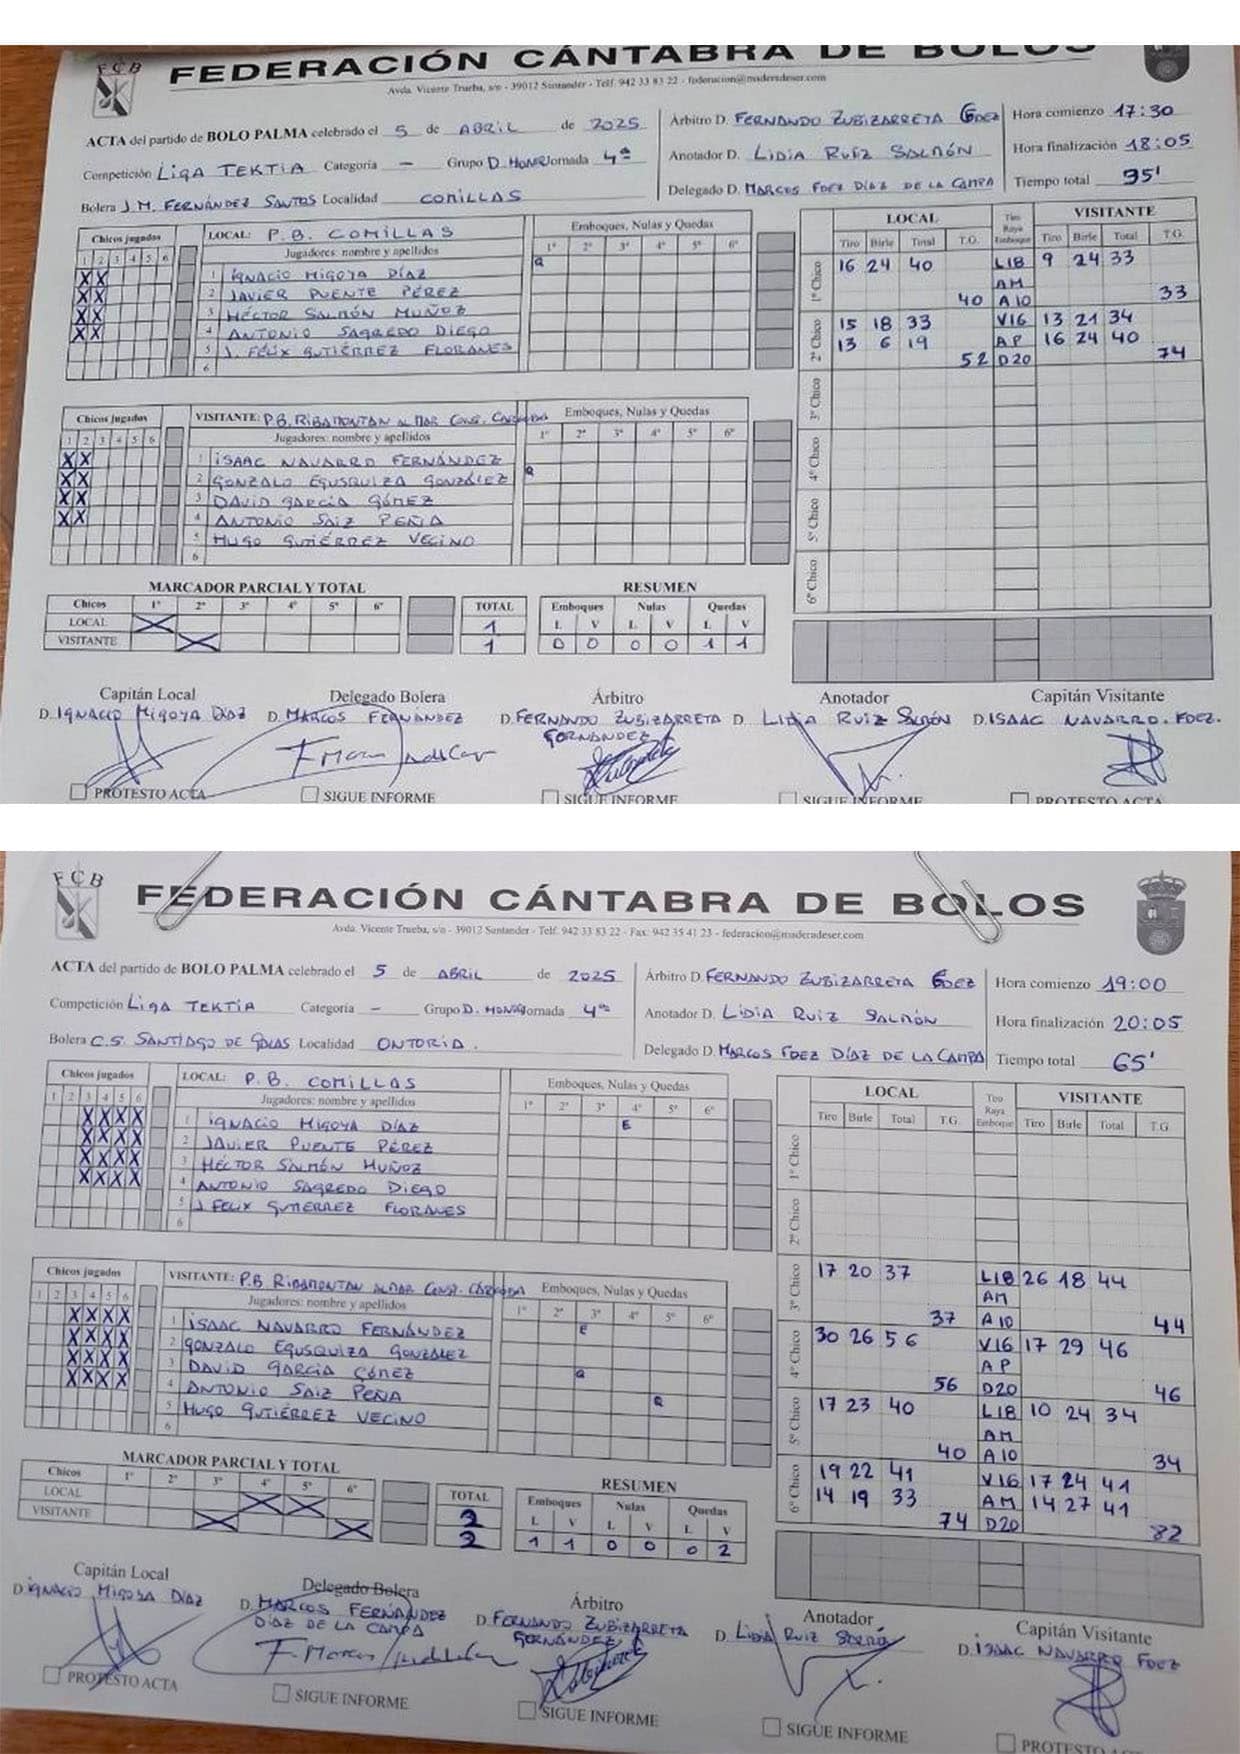 FCB
FEDERACIÓN CÁNTABRA DE BOLOS
Avda. Vicente Trueba, s/n - 39012 Santander - Telf. 942 33 83 22 - federacion@maderadeser.com
ACTA del partido de BOLO PALMA celebrado el 5 de ABRIL de 2025
Competición LIGA TEKTIA Categoría - Grupo D. HONOR Jornada 4ª
Bolera J.M. FERNÁNDEZ SANTOS Localidad COMILLAS
Árbitro D. FERNANDO ZUBIZARRETA FDEZ
Anotador D. LIDIA RUIZ SALMÓN
Delegado D. MARCOS FDEZ DÍAZ DE LA CAMPA
Hora comienzo 17:30
Hora finalización 18:05
Tiempo total 35'
Chicos jugados
1 2 3 4 5 6
LOCAL: P.B. COMILLAS
Jugadores: nombre y apellidos
Emboques, Nulas y Quedas
1º 2º 3º 4º 5º 6º
X X 1 IGNACIO MIGOYA DÍAZ Q
X X 2 JAVIER PUENTE PÉREZ
X X 3 HÉCTOR SALMÓN MUÑOZ
X X 4 ANTONIO SAGREDO DIEGO
5 J. FÉLIX GUTIÉRREZ FLORANES
6
Chicos jugados
1 2 3 4 5 6
VISITANTE: P.B. RIBAMONTAN AL MAR CONST. CÁRCOBA
Jugadores: nombre y apellidos
Emboques, Nulas y Quedas
1º 2º 3º 4º 5º 6º
X X 1 ISAAC NAVARRO FERNÁNDEZ
X X 2 GONZALO EGUSQUIZA GONZÁLEZ Q
X X 3 DAVID GARCÍA GÓMEZ
X X 4 ANTONIO SAIZ PEÑA
5 HUGO GUTIÉRREZ VECINO
6
LOCAL Tiro Raya Emboque VISITANTE
Tiro Birle Total T.G. Tiro Birle Total T.G.
1º Chico 16 24 40 L18 9 24 33
AM
40 A10 33
2º Chico 15 18 33 V16 13 21 34
13 6 19 AP 16 24 40
52 D20 74
3º Chico
4º Chico
5º Chico
6º Chico
MARCADOR PARCIAL Y TOTAL
Chicos 1º 2º 3º 4º 5º 6º TOTAL
LOCAL X 1
VISITANTE X 1
RESUMEN
Emboques Nulas Quedas
L V L V L V
0 0 0 0 1 1
Capitán Local
D. IGNACIO MIGOYA DÍAZ
Delegado Bolera
D. MARCOS FERNÁNDEZ
Árbitro
D. FERNANDO ZUBIZARRETA
FERNÁNDEZ
Anotador
D. LIDIA RUIZ SALMÓN
Capitán Visitante
D. ISAAC NAVARRO. FDEZ.
PROTESTO ACTA
SIGUE INFORME
SIGUE INFORME
SIGUE INFORME
PROTESTO ACTA
FCB
FEDERACIÓN CÁNTABRA DE BOLOS
Avda. Vicente Trueba, s/n - 39012 Santander - Telf. 942 33 83 22 - Fax: 942 35 41 23 - federacion@maderadeser.com
ACTA del partido de BOLO PALMA celebrado el 5 de ABRIL de 2025
Competición LIGA TEKTIA Categoría - Grupo D. HONOR Jornada 4ª
Bolera C.S. SANTIAGO DE GOLAS Localidad ONTORIA.
Árbitro D. FERNANDO ZUBIZARRETA FDEZ
Anotador D. LIDIA RUIZ SALMÓN
Delegado D. MARCOS FDEZ DÍAZ DE LA CAMPA
Hora comienzo 19:00
Hora finalización 20:05
Tiempo total 65'
Chicos jugados
1 2 3 4 5 6
LOCAL: P.B. COMILLAS
Jugadores: nombre y apellidos
Emboques, Nulas y Quedas
1º 2º 3º 4º 5º 6º
X X X X 1 IGNACIO MIGOYA DÍAZ E
X X X X 2 JAVIER PUENTE PÉREZ
X X X X 3 HÉCTOR SALMÓN MUÑOZ
X X X X 4 ANTONIO SAGREDO DIEGO
5 J. FELIX GUTIERREZ FLORANES
6
Chicos jugados
1 2 3 4 5 6
VISITANTE: P.B RIBAMONTAN AL MAR CONST. CÁRCOBA
Jugadores: nombre y apellidos
Emboques, Nulas y Quedas
1º 2º 3º 4º 5º 6º
X X X X 1 ISAAC NAVARRO FERNÁNDEZ E
X X X X 2 GONZALO EGUSQUIZA GONZALEZ
X X X X 3 DAVID GARCÍA GÓMEZ Q
X X X X 4 ANTONIO SAIZ PEÑA Q
5 HUGO GUTIÉRREZ VECINO
6
LOCAL Tiro Raya Emboque VISITANTE
Tiro Birle Total T.G. Tiro Birle Total T.G.
1º Chico
2º Chico
3º Chico 17 20 37 L18 26 18 44
AM
37 A10 44
4º Chico 30 26 56 V16 17 29 46
AP
56 D20 46
5º Chico 17 23 40 L18 10 24 34
AM
40 A10 34
6º Chico 19 22 41 V16 17 24 41
14 19 33 AM 14 27 41
74 D20 82
MARCADOR PARCIAL Y TOTAL
Chicos 1º 2º 3º 4º 5º 6º TOTAL
LOCAL X X 2
VISITANTE X X 2
RESUMEN
Emboques Nulas Quedas
L V L V L V
1 1 0 0 0 2
Capitán Local
D. IGNACIO MIGOYA DÍAZ
Delegado Bolera
D. MARCOS FERNÁNDEZ
DÍAZ DE LA CAMPA
Árbitro
D. FERNANDO ZUBIZARRETA
FERNÁNDEZ
Anotador
D. LIDIA RUIZ SALMÓN
Capitán Visitante
D. ISAAC NAVARRO FDEZ
PROTESTO ACTA
SIGUE INFORME
SIGUE INFORME
SIGUE INFORME
PROTESTO ACTA